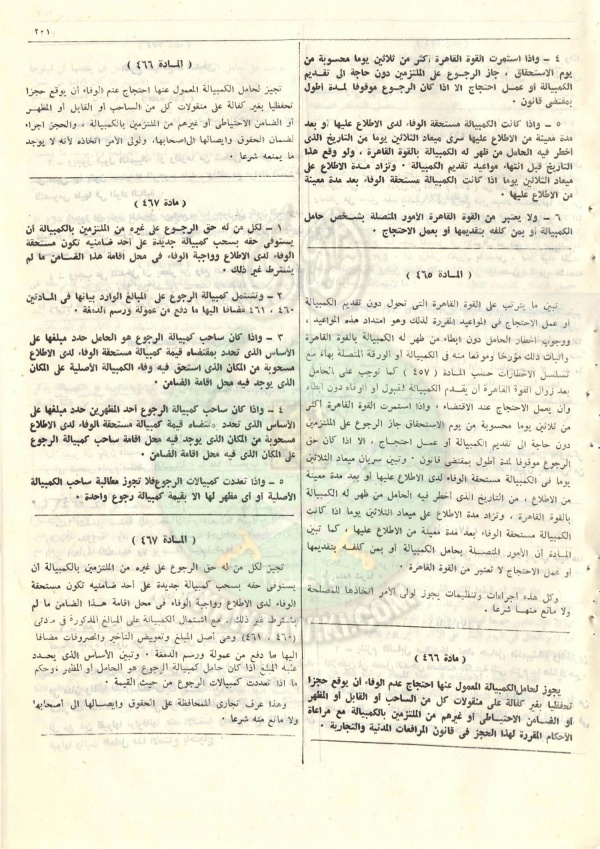 ٢٠١
٤ - واذا استمرت القوة القاهرة أكثر من ثلاثين يوما محسوبة من
يوم الاستحقاق ، جاز الرجوع على الملتزمين دون حاجة الى تقديم
الكمبيالة أو عمل احتجاج الا اذا كان الرجوع موقوفا لمدة أطول
بمقتضى قانون ٠
٥ - واذا كانت الكمبيالة مستحقة الوفاء لدى الاطلاع عليها أو بعد
مدة معينة من الاطلاع عليها سرى ميعاد الثلاثين يوما من التاريخ الذى
أخطر فيه الحامل من ظهر له الكمبيالة بالقوة القاهرة ، ولو وقع هذا
التاريخ قبل انتهاء مواعيد تقديم الكمبيالة ٠ وتزاد مدة الاطلاع على
ميعاد الثلاثين يوما اذا كانت الكمبيالة مستحقة الوفاء بعد مدة معينة
من الاطلاع عليها ٠
٦ - ولا يعتبر من القوة القاهرة الأمور المتصلة بشخص حامل
الكمبيالة أو بمن كلفه بتقديمها أو بعمل الاحتجاج ٠
( المادة ٤٦٥ )
تبين ما يترتب على القوة القاهرة التى تحول دون تقديم الكمبيالة
أو عمل الاحتجاج فى المواعيد المقررة لذلك وهو امتداد هذه المواعيد ،
ووجوب اخطار الحامل دون ابطاء من ظهر له الكمبيالة بالقوة القاهرة
واثبات ذلك مؤرخا وموقعا منه فى الكمبيالة أو الورقة المتصلة بها، مع
تسلسل الاخطارات حسب المادة ( ٤٥٧ ) كما توجب على الحامل
بعد زوال القوة القاهرة أن يقدم الكمبيالة للقبول أو الوفاء دون ابطاء
وأن يعمل الاحتجاج عند الاقتضاء ، واذا استمرت القوة القاهرة أكثر
من ثلاثين يوما محسوبة من يوم الاستحقاق جاز الرجوع على الملتزمين
دون حاجة الى تقديم الكمبيالة أو عمل احتجاج ، الا اذا كان حق
الرجوع موقوفا لمدة أطول بمقتضى قانون ٠ وتبين سريان ميعاد الثلاثين
يوما فى الكمبيالة مستحقة الوفاء لدى الاطلاع عليها أو بعد مدة معينة
من الاطلاع ، من التاريخ الذى أخطر فيه الحامل من ظهر له الكمبيالة
بالقوة القاهرة ، وتزاد مدة الاطلاع على ميعاد الثلاثين يوما اذا كانت
الكمبيالة مستحقة الوفاء بعد مدة معينة من الاطلاع عليها ، كما تبين
المادة أن الأمور المتصلة بحامل الكمبيالة أو بمن كلفه بتقديمها
أو عمل الاحتجاج لا تعتبر من القوة القاهرة ٠
وكل هذه اجراءات وتنظيمات يجوز لولى الأمر اتخاذها للمصلحة
ولا مانع منهما شرعا ٠
( مادة ٤٦٦ )
يجوز لحامل الكمبيالة المعمول عنها احتجاج عدم الوفاء أن يوقع حجزا
تحفظيا بغير كفالة على منقولات كل من الساحب أو القابل أو المظهر
أو الضامن الاحتياطى أو غيرهم من الملتزمين بالكمبيالة مع مراعاة
الأحكام المقررة لهذا الحجز فى قانون المرافعات المدنية والتجارية ٠
( المادة ٤٦٦ )
تجيز لحامل الكمبيالة المعمول عنها احتجاج عدم الوفاء أن يوقع حجزا
تحفظيا بغير كفالة على منقولات كل من الساحب أو القابل أو المظهر
أو الضامن الاحتياطى أو غيرهم من الملتزمين بالكمبيالة ، والحجز اجراء
لضمان الحقوق وايصالها الى أصحابها، ولولى الأمر اتخاذه لأنه لا يوجد
ما يمنعه شرعا ٠
( مادة ٤٦٧ )
١ - لكل من له حق الرجوع على غيره من الملتزمين بالكمبيالة أن
يستوفى حقه بسحب كمبيالة جديدة على أحد ضامنيه تكون مستحقة
الوفاء لدى الاطلاع وواجبة الوفاء فى محل اقامة هذا الضامن ما لم
يشترط غير ذلك ٠
٢ - وتشتمل كمبيالة الرجوع على المبالغ الوارد بيانها فى المادتين
٤٦٠ ، ٤٦١ مضافا اليها ما دفع من عمولة ورسم الدمغة ٠
٣ - واذا كان ساحب كمبيالة الرجوع هو الحامل حدد مبلغها على
الأساس الذى تحدد بمقتضاه قيمة كمبيالة مستحقة الوفاء لدى الاطلاع
مسحوبة من المكان الذى استحق فيه وفاء الكمبيالة الأصلية على المكان
الذى يوجد فيه محل اقامة الضامن ٠
٤ - واذا كان ساحب كمبيالة الرجوع أحد المظهرين حدد مبلغها على
الأساس الذى تحدد بمقتضاه قيمة كمبيالة مستحقة الوفاء لدى الاطلاع
مسحوبة من المكان الذى يوجد فيه محل اقامة ساحب كمبيالة الرجوع
على المكان الذى به محل اقامة الضامن ٠
٥ - واذا تعددت كمبيالات الرجوع فلا تجوز مطالبة ساحب الكمبيالة
الأصلية أو أى مظهر لها الا بقيمة كمبيالة رجوع واحدة ٠
( المادة ٤٦٧ )
تجيز لكل من له حق الرجوع على غيره من الملتزمين بالكمبيالة أن
يستوفى حقه بسحب كمبيالة جديدة على أحد ضامنيه تكون مستحقة
الوفاء لدى الاطلاع وواجبة الوفاء فى محل اقامة هذا الضامن ما لم
يشترط غير ذلك ٠ مع اشتمال الكمبيالة على المبالغ المذكورة فى مادتى
(٤٦٠ ، ٤٦١) وهى أصل المبلغ وتعويض التأخير والمصروفات مضافا
اليها ما دفع من عمولة ورسم الدمغة ٠ وتبين الأساس الذى يحدد
عليه المبلغ اذا كان حامل كمبيالة الرجوع هو الحامل أو المظهر، وحكم
ما اذا تعددت كمبيالات الرجوع من حيث القيمة ٠
وهذا عرف تجارى للمحافظة على الحقوق وايصالها الى أصحابها
ولا مانع منه شرعا ٠